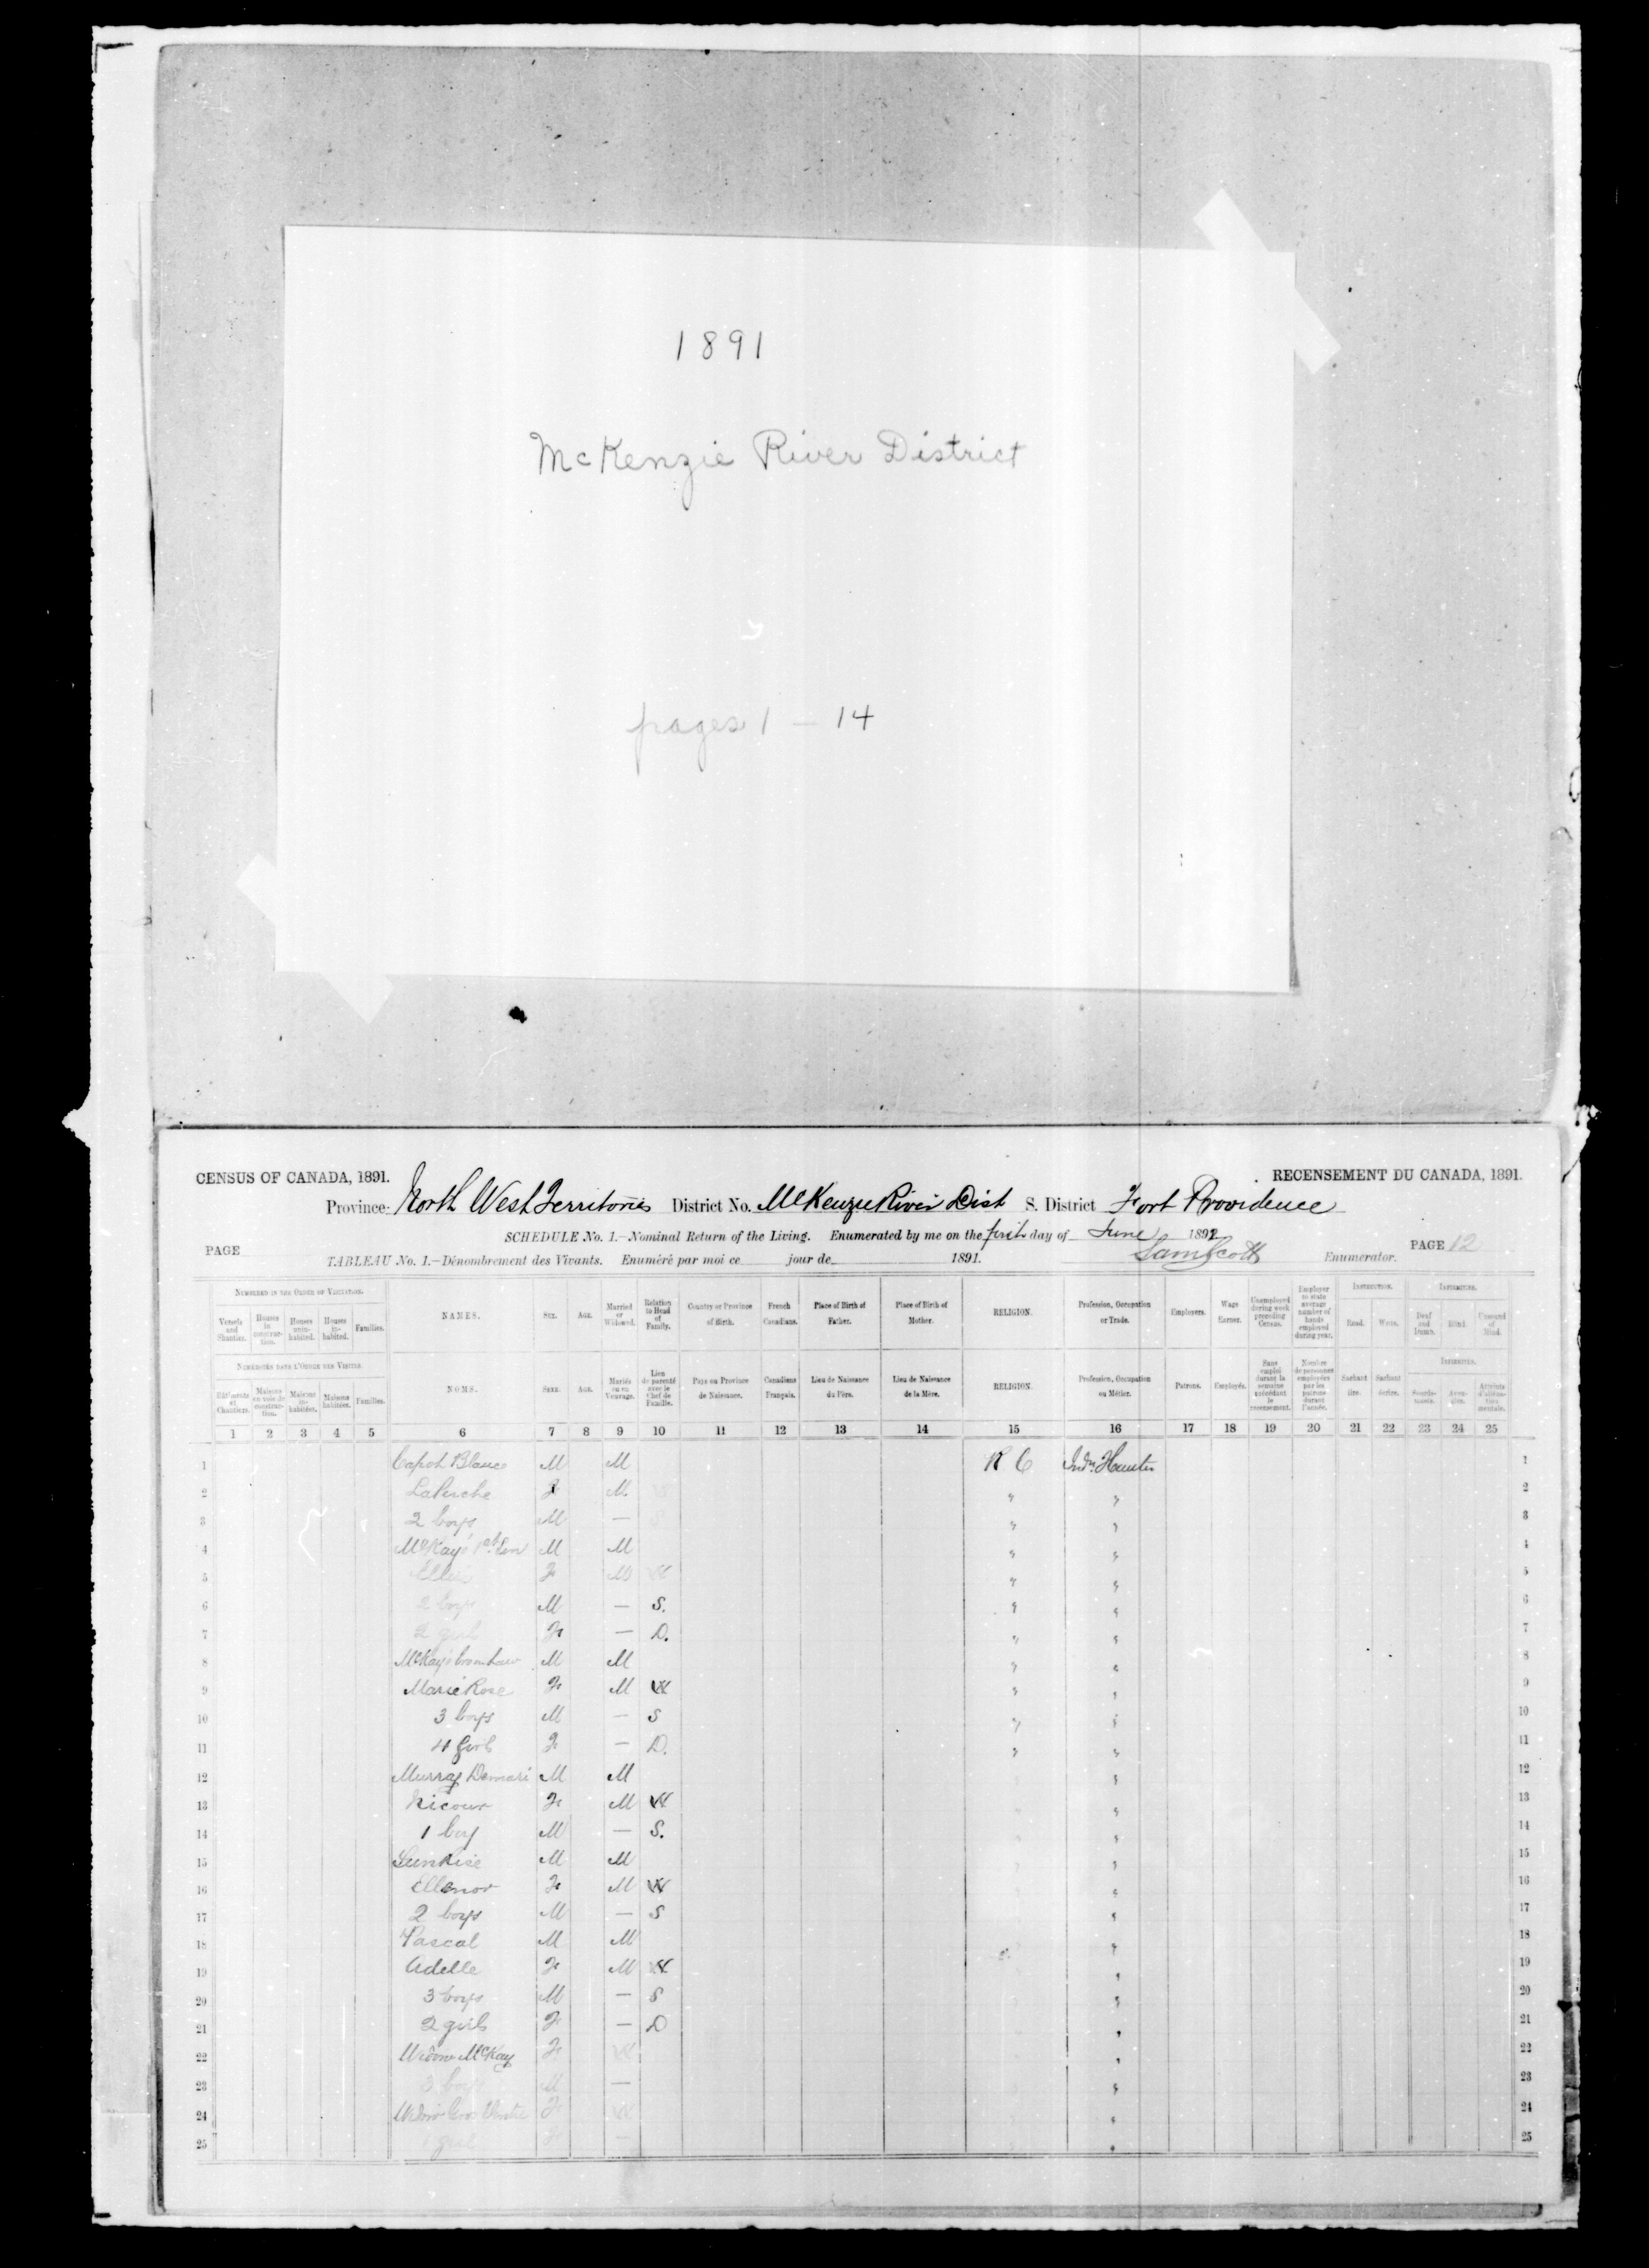 1891
McKenzie River District
pages 1 – 14
CENSUS OF CANADA, 1891. RECENSEMENT DU CANADA, 1891.
Province: North West Territories District No. McKenzie River Dist S. District Fort Providence
SCHEDULE No. 1.—Nominal Return of the Living. Enumerated by me on the first day of June 1892
PAGE PAGE 12
TABLEAU No. 1.—Dénombrement des Vivants. Enuméré par moi ce jour de 1891. Sam Scott Enumerator.
NUMBERED IN THE ORDER OF VISITATION. INSTRUCTION. INFIRMITIES.
Vessels and Shanties. Houses in construction. Houses uninhabited. Houses inhabited. Families. NAMES. SEX. AGE. Married or Widowed. Relation to Head of Family. Country or Province of Birth. French Canadians. Place of Birth of Father. Place of Birth of Mother. RELIGION. Profession, Occupation or Trade. Employers. Wage Earner. Unemployed during week preceding Census. Employer to state average number of hands employed during year. Read. Write. Deaf and Dumb. Blind. Unsound of Mind.
NUMÉROTÉS DANS L'ORDRE DES VISITES
Bâtiments et Chantiers. Maisons en voie de construction. Maisons inhabitées. Maisons habitées. Familles. NOMS. SEXE. AGE. Mariés ou en Veuvage. Lien de parenté avec le Chef de Famille. Pays ou Province de Naissance. Canadiens Français. Lieu de Naissance du Père. Lieu de Naissance de la Mère. RELIGION. Profession, Occupation ou Métier. Patrons. Employés. Sans emploi durant la semaine précédant le recensement. Nombre de personnes employées par les patrons durant l'année. Sachant lire. Sachant écrire. Sourds-muets. Aveugles. Atteints d'aliénation mentale.
1 2 3 4 5 6 7 8 9 10 11 12 13 14 15 16 17 18 19 20 21 22 23 24 25
1 Capot Blanc M M R C Indn. Hunter 1
2 LaPerche F M " " 2
3 2 boys M — " " 3
4 McKay's 1st Son M M " " 4
5 F M W " " 5
6 2 boys M — S. " " 6
7 2 girls F — D. " " 7
8 McKay's M M " " 8
9 Marie Rose F M W " " 9
10 3 boys M — S " " 10
11 4 Girls F — D. " " 11
12 Murray M M " 12
13 Nicour F M W " 13
14 1 boy M — S. " 14
15 Sunrise M M " 15
16 Ellenor F M W " 16
17 2 boys M — S " 17
18 Pascal M M " 18
19 Adelle F M W " 19
20 3 boys M — S " 20
21 2 girls F — D " 21
22 Widow McKay F W " 22
23 3 boys M — " 23
24 Widow F W " 24
25 " 25